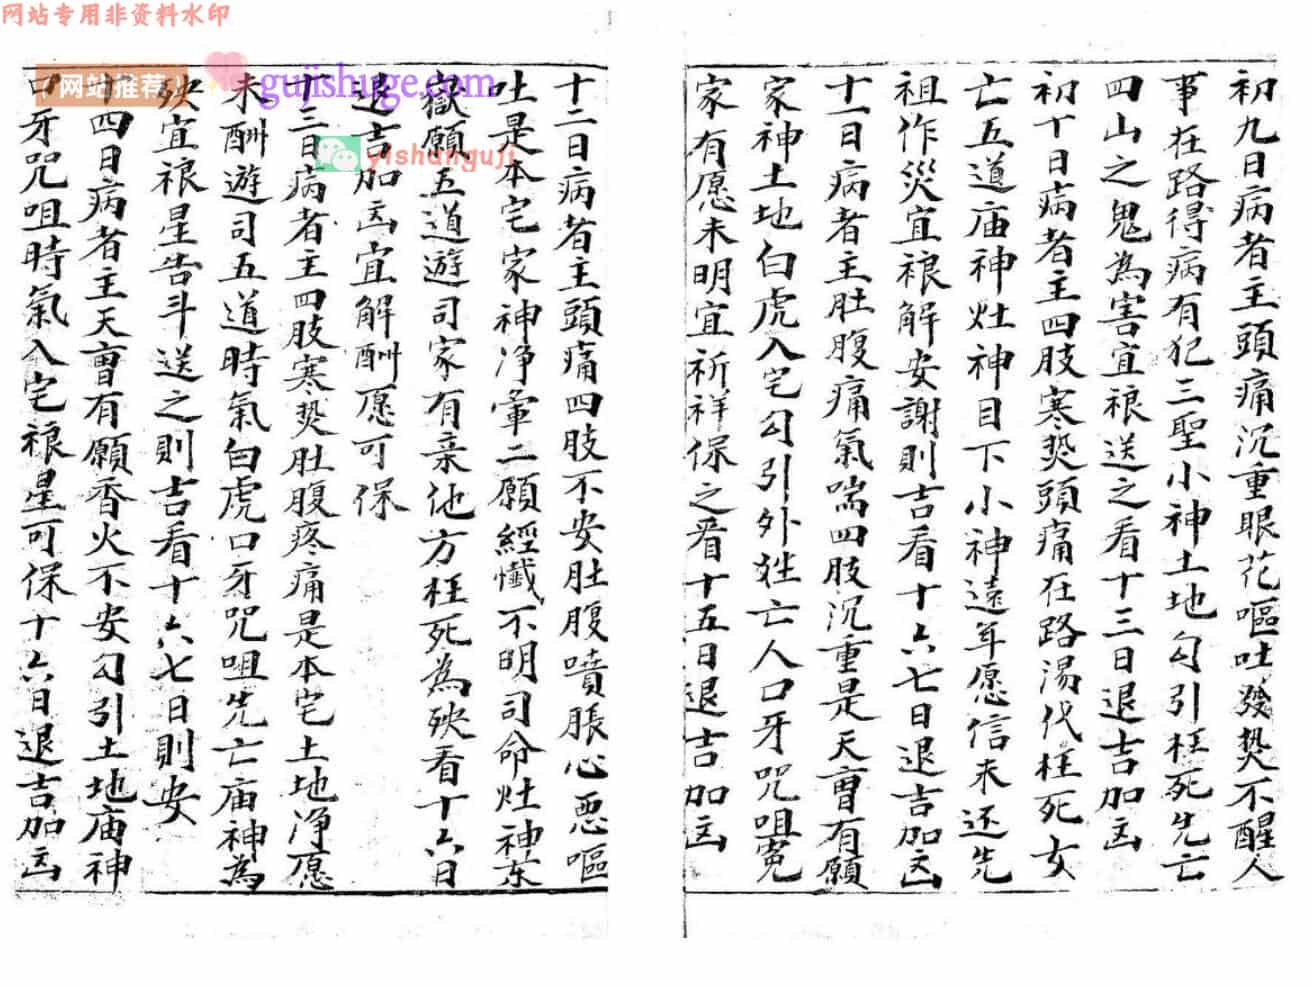 网站专用非资料水印
初九日病者主頭痛沉重眼花嘔吐發热不醒人
事在路得病有犯三聖小神土地勾引枉死先亡
四山之鬼為害宜禳送之看十三日退吉加凶
初十日病者主四肢寒热頭痛在路湯代枉死女
亡五道庙神灶神目下小神遠年愿信未还先
祖作災宜禳解安謝則吉看十六七日退吉加凶
十一日病者主肚腹痛氣喘四肢沉重是天曹有願
家神土地白虎入宅勾引外姓亡人口牙咒咀冤
家有愿未明宜祈祥保之看十五日退吉加凶
网站推荐
gujishuge.com
yishunguji
十二日病者主頭痛四肢不安肚腹噴脹心恶嘔
吐是本宅家神净暈二願經懺不明司命灶神东
嶽願五道遊司家有亲他方枉死為殃看十六日
退吉加凶宜解酬愿可保
十三日病者主四肢寒热肚腹疼痛是本宅土地净愿
未酬遊司五道時氣白虎口牙咒咀先亡庙神為
殃宜禳星告斗送之則吉看十六七日則安
十四日病者主天曹有願香火不安勾引土地庙神
口牙咒咀時氣入宅禳星可保十六日退吉加凶